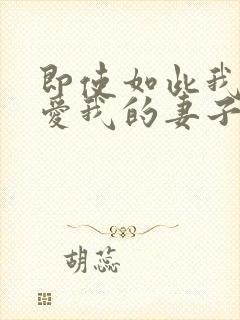 即使如此我
爱我的妻子
胡蕊